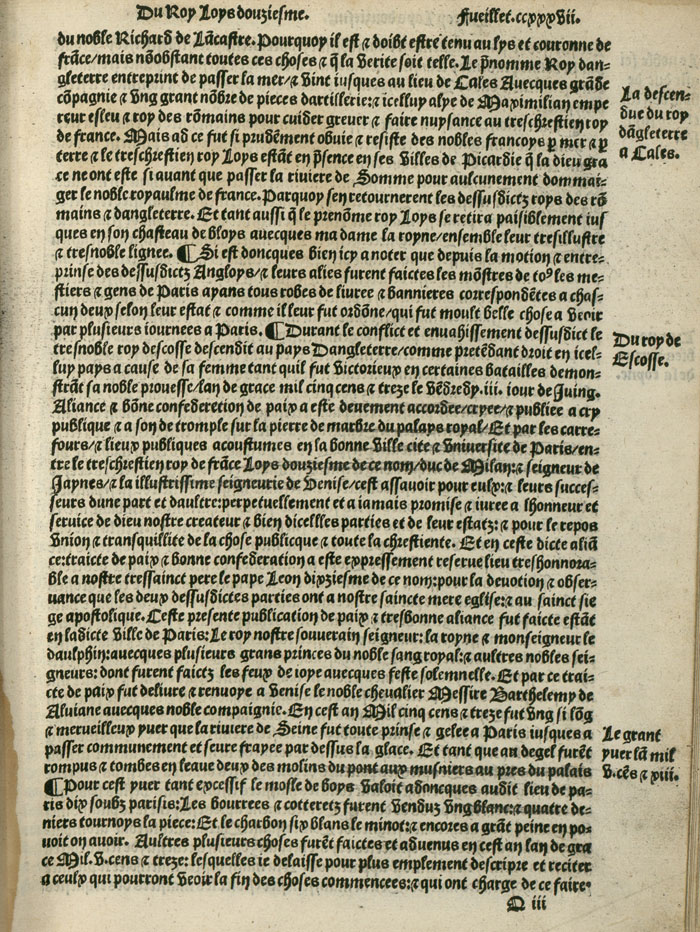 Du Roy Loys douziesme.
Fueillet.ccxxxvii.
du noble Richard de Lãcastre. Pourquoy il est ⁊ doibt estre tenu au lys et couronne de
frãce/mais nõobstant toutes ces choses ⁊ q̃ la verite soit telle. Le p̃nomme Roy dan-
gleterre entreprint de passer la mer/⁊ vint iusques au lieu de Cales Avecques grãde
cõpagnie ⁊ vng grant nõbre de pieces dartillerie:⁊ icelluy alye de Maximilian empe
reur esleu ⁊ roy des rõmains pour cuider grever ⁊ faire nuysance au treschrestien roy
de france. Mais ad ce fut si prudẽment obuie ⁊ resiste des nobles francoys p̱ mer ⁊ p̱
terre ⁊ le treschrestien roy Loys estãt en p̃sence en ses villes de Picardie q̃ la dieu gra
ce ne ont este si auant que passer la riviere de Somme pour aulcunement dommai-
ger le noble royaulme de france. Parquoy sen retournerent les dessusdictz roys des rõ
mains ⁊ dangleterre. Et tant aussi q̃ le prenõme roy Loys se retira paisiblement ius
ques en son chasteau de bloys auecques ma dame la royne/ensemble leur tresillustre
⁊ tresnoble lignee. ¶ Si est doncques bien icy a noter que depuis la motion ⁊ entre-
prinse des dessusdictz Angloys/⁊ leurs alies furent faictes les mõstres de toꝰ les me-
stiers ⁊ gens de Paris ayans tous robes de livree ⁊ bannieres correspondẽtes a chas-
cun deux selon leur estat ⁊ comme il leur fut ordõne/qui fut moult belle chose a veoir
par plusieurs iournees a Paris. ¶ Durant le conflict et enuahissement dessusdict le
tresnoble roy descosse descendit au pays Dangleterre/comme pretẽdant droit en icel-
luy pays a cause de sa femme tant quil fut victorieux en certaines batailles demon-
strãt sa noble prouesse/lan de grace mil cinq cens ⁊ treze le vẽdredy.iii. iour de Juing.
Aliance ⁊ bõne confederetion de paix a este deuement accordee/cryee/⁊ publiee a cry
publique ⁊ a son de trompe sur la pierre de marbre du palays royal/Et par les carre-
fours/⁊ lieux publiques acoustumes en la bonne ville cite ⁊ vniuersite de Paris/en-
tre le treschrestien roy de frãce Loys douziesme de ce nom/duc de Milan:⁊ seigneur de
Jaynes/⁊ la illustrissime seigneurie de Venise/cest assavoir pour eulx:⁊ leurs succes-
seurs dune part et daultre:perpetuellement et a iamais promise ⁊ iuree a lhonneur et
service de dieu nostre createur ⁊ bien dicelles parties et de leur estatz:⁊ pour le repos
vnion ⁊ transquillite de la chose publicque ⁊ toute la chrestiente. Et en ceste dicte aliã
ce:traicte de paix ⁊ bonne confederation a este expressement reserve lieu treshonnora-
ble a nostre tressainct pere le pape Leon dixziesme de ce nom:pour la devotion ⁊ obser-
uance que les deux dessusdictes parties ont a nostre saincte mere eglise:⁊ au sainct sie
ge apostolique. Ceste presente publication de paix ⁊ tresbonne aliance fut faicte estãt
en ladicte ville de Paris:Le roy nostre souverain seigneur: la royne ⁊ monseigneur le
daulphin:auecques plusieurs grans princes du noble sang royal:⁊ aultres nobles sei-
gneurs: dont furent faictz les feux de ioye auecques feste solemnelle. Et par ce trai-
cte de paix fut deliure ⁊ renuoye a Venise le noble chevalier Messire Barthelemy de
Alviane auecques noble compaignie. En cest an Mil cinq cens ⁊ treze fut vng si lõg
⁊ merueilleux yuer que la riuiere de Seine fut toute prinse ⁊ gelee a Paris iusques a
passer communement et seure frayee par dessus la glace. Et tant que au degel furẽt
rompus ⁊ tombes en leaue deux des molins du pont aux musniers au pres du palais
¶ Pour cest yuer tant excessif le mosle de boys valoit adoncques audit lieu de pa-
ris dix soubz parisis: Les bourrees ⁊ cotteretz furent venduz vng blanc:⁊ quatre de-
niers tournoys la piece: Et le charbon six blans le minot:⁊ encores a grãt peine en po-
voit on avoir. Aultres plusieurs choses furẽt faictes et aduenus en cest an lan de gra
ce Mil. v.cens ⁊ treze: lesquelles ie delaisse pour plus emplement descripre et reciter
a ceulx qui pourront veoir la fin des choses commencees:⁊ qui ont charge de ce faire.
Q iii
La descen-
due du roy
dãgleterre
a Cales.
Du roy de
Escosse.
Le grant
yuer lã mil
v.cẽs ⁊ xiii.